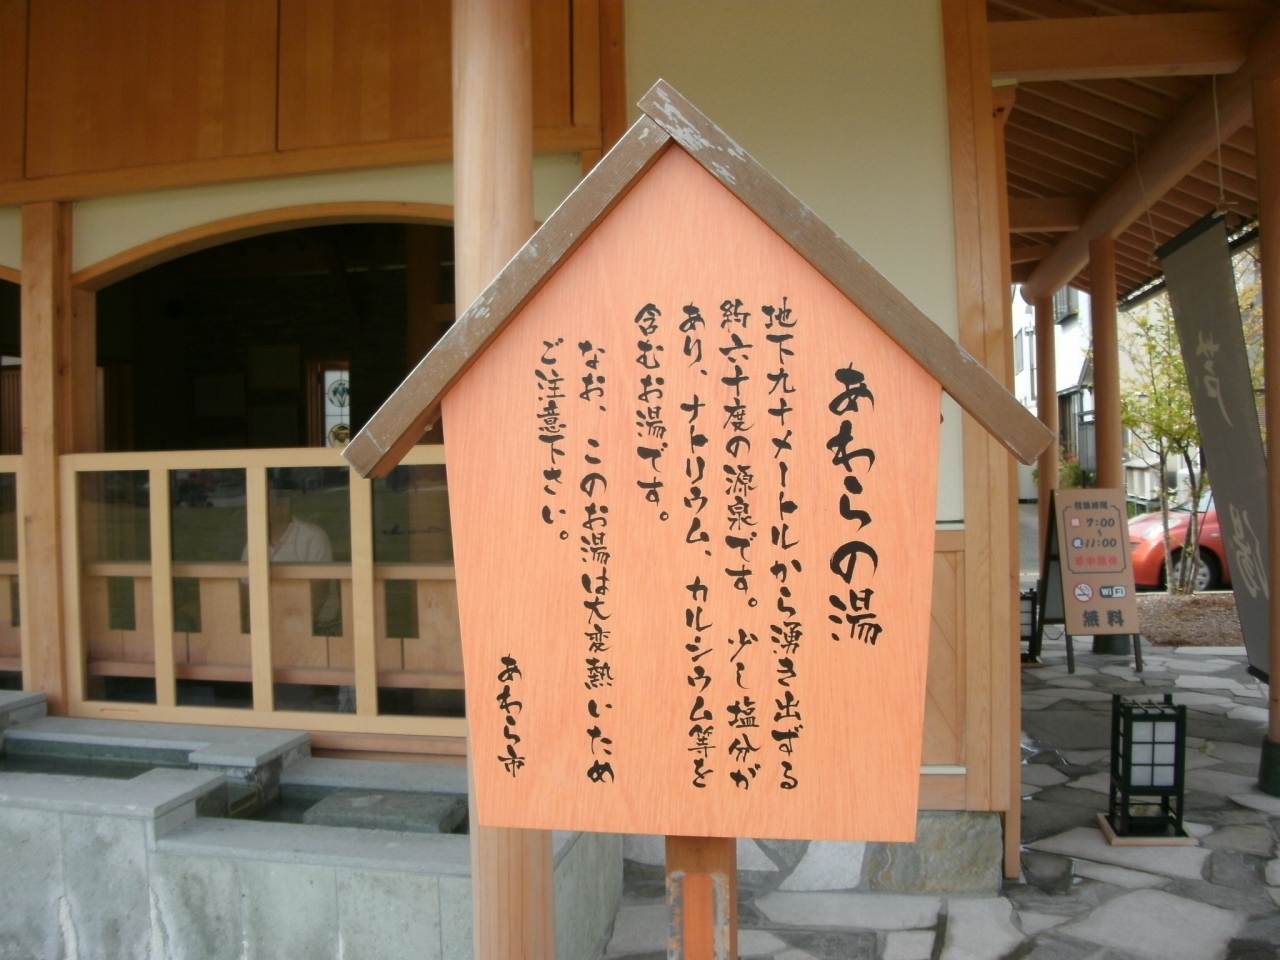 あわらの湯
地下九十メートルから湧き出ずる
約六十度の源泉です。少し塩分が
あり、ナトリウム、カルシウム等を
含むお湯です。
なお、このお湯は大変熱いため
ご注意下さい。
あわら市
7:00
〜
11:00
年中無休
WiFi
無料